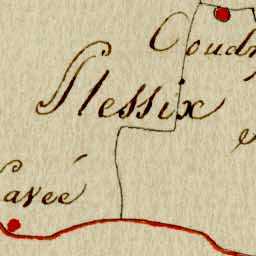 Coud
Plessix
avée